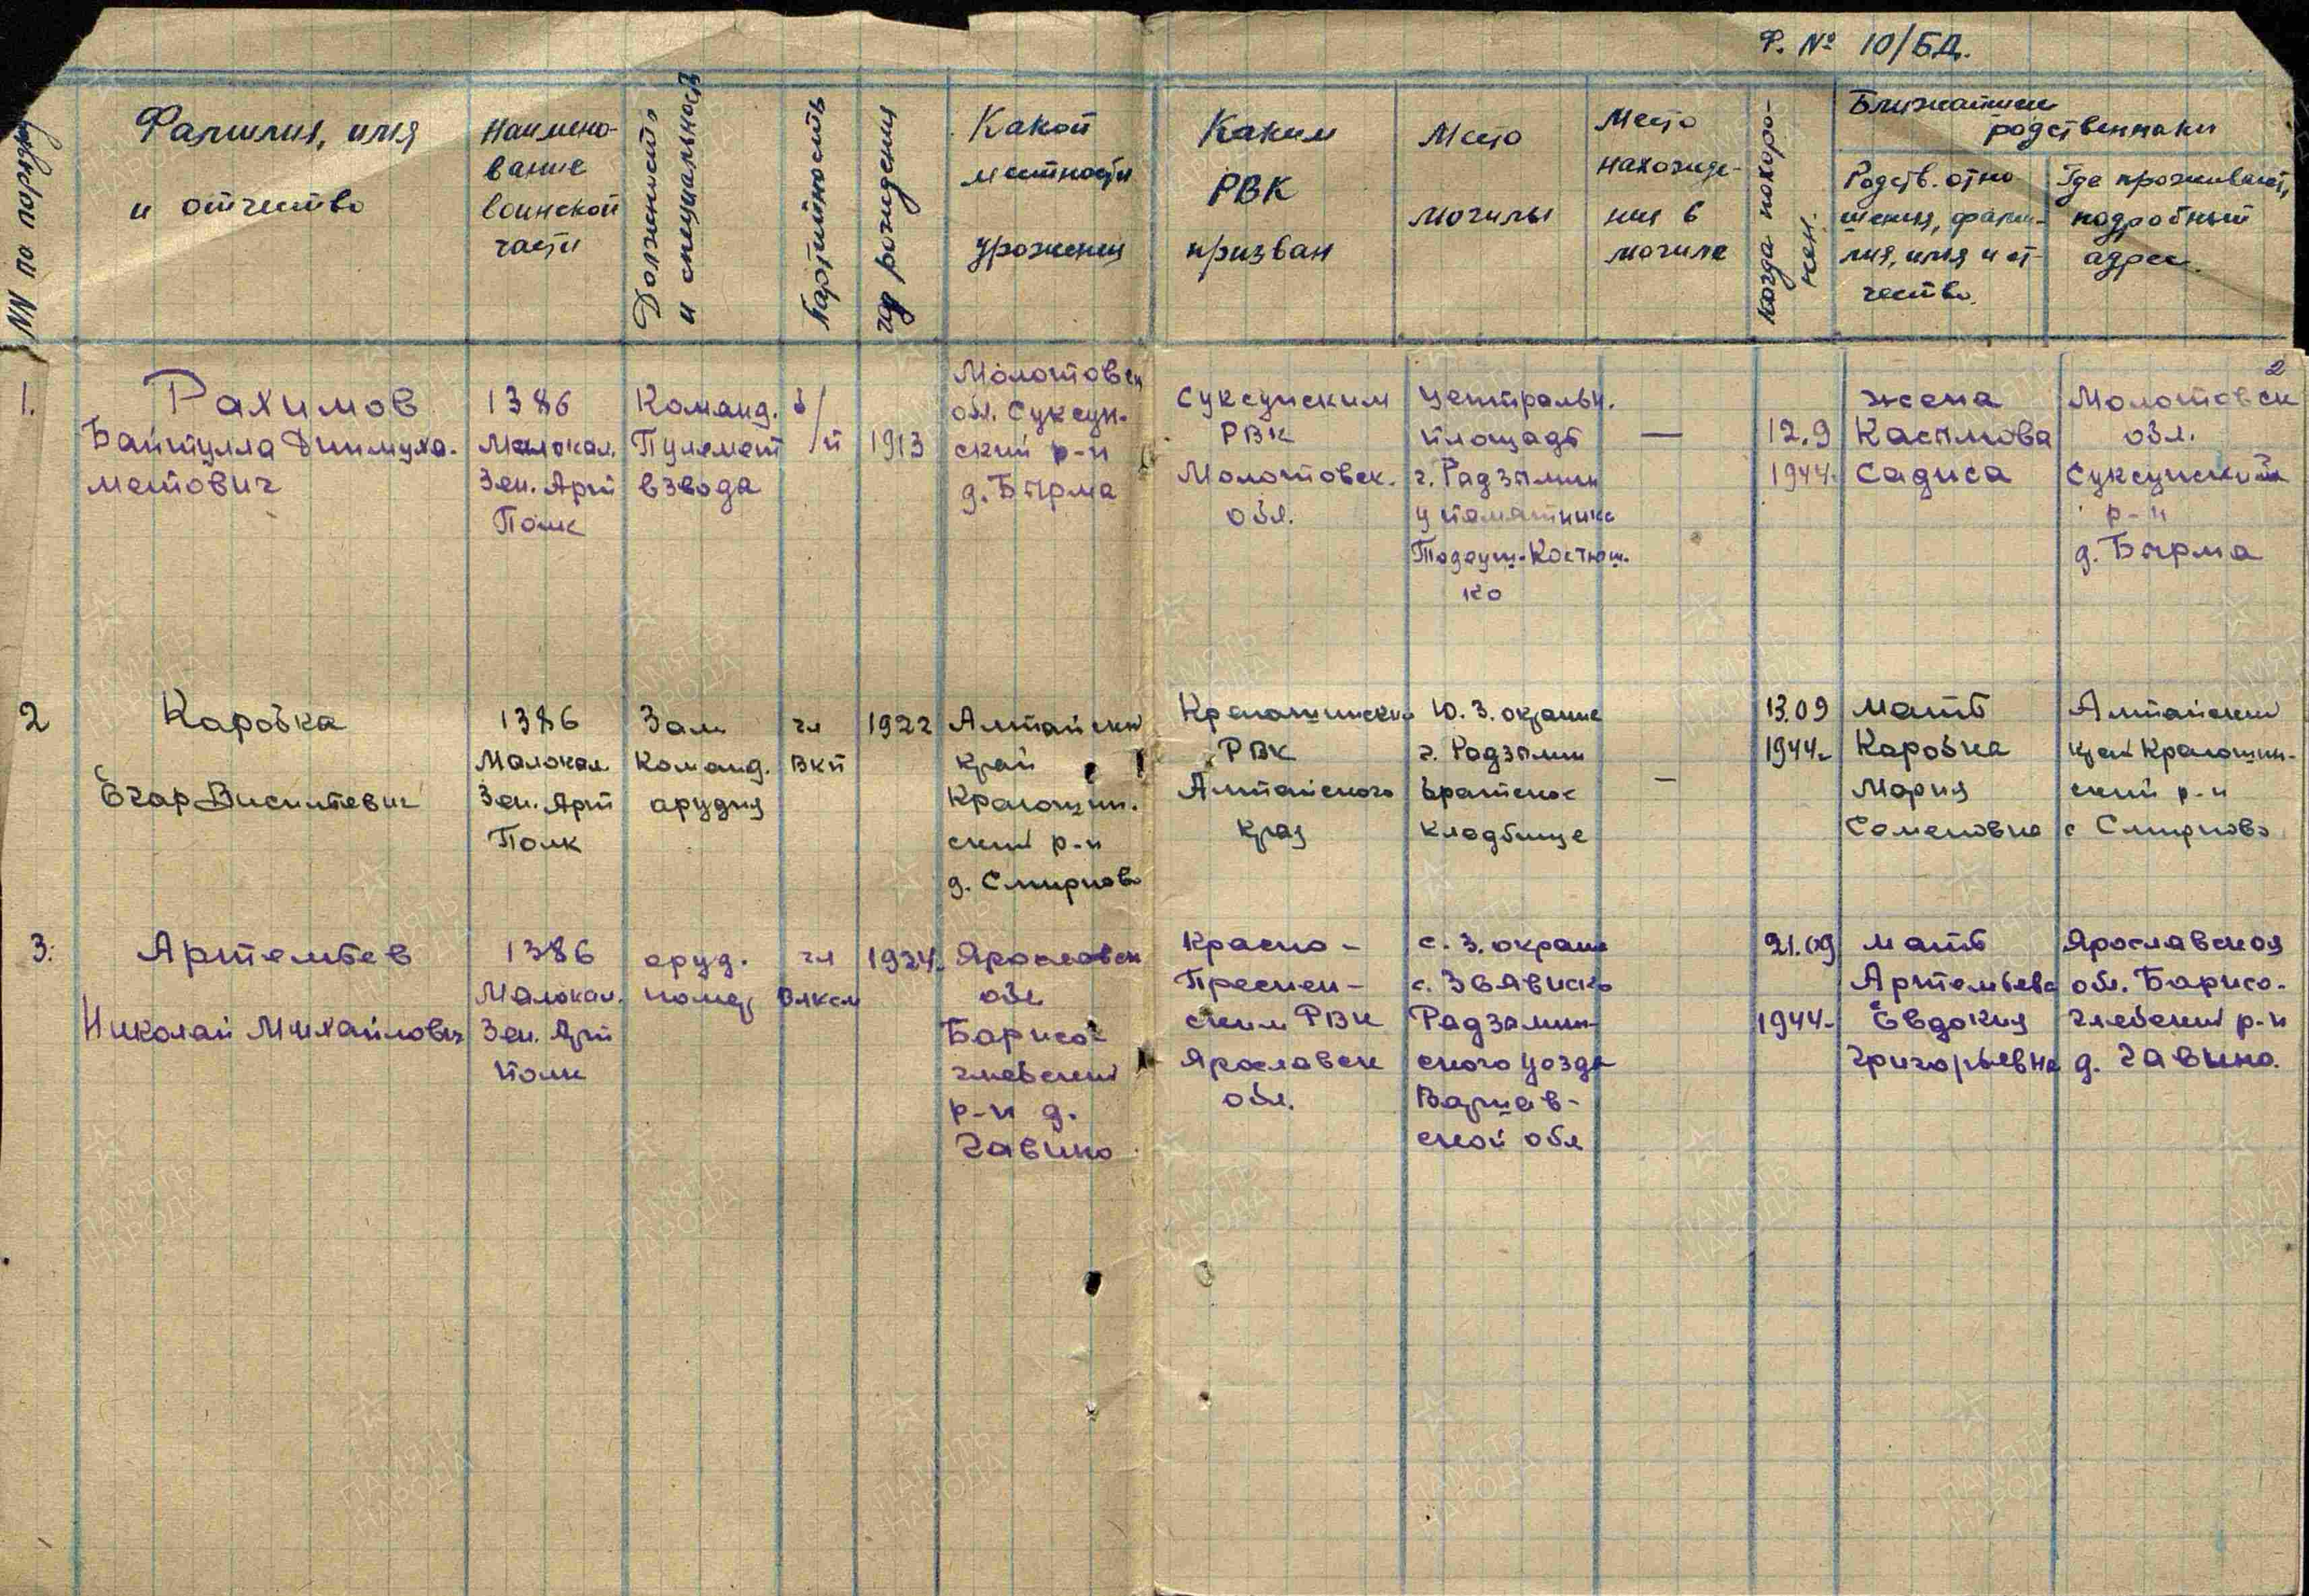 Ф. № 10/БД.
NN по порядку
Фамилия, имя
и отчество
Наимено-
вание
воинской
части
Должность
и специальность
Партийность
год рождения
Какой
местности
уроженец
Каким
РВК
призван
Место
могилы
Место
нахожде-
ния в
могиле
Когда похоро-
нен.
Ближайшие
родственники
Родств. отно
шения, фами-
лия, имя и от-
чество.
Где проживают,
подробный
адрес.
2
1.
Рахимов
Байтулла Динмуха-
метович
1386
Малокал.
Зен. Арт
Полк
Команд.
Пулемет
взвода
б/п
1913
Молотовск
обл. Суксун-
ский р-н
д. Бырма
Суксунским
РВК
Молотовск.
обл.
Центральн.
площадь
г. Радзымин
у памятника
Тодеуш-Костюш-
ко
—
12.9
1944.
жена
Касымова
Садиса
Молотовск
обл.
Суксунский
р-н
д. Бырма
2
Каробка
Егар
1386
Малокал.
Зен. Арт
Полк
Зам
Команд.
арудия
чл
ВКП
1922
Алтайский
край
ский р-н
д. Смирново
РВК
Алтайского
края
Ю. З. окраине
г. Радзымин
братское
кладбище
—
13.09
1944г
мать
Каробка
Мария
Семеновна
Алтайский
край
ский р-н
с Смирново
3.
Артемьев
Николай Михайлович
1386
Малокал.
Зен. Арт
полк
оруд.
номер
чл
Влксм
1924.
Ярославск
обл.
Барисо-
глебский
р-н д.
Гавино
Красно-
Преснен-
ским РВК
Ярославск
обл.
с. З. окраине
Радзымин-
ского уезда
Варшав-
ской обл
21.09
1944-
мать
Артемьева
Евдокия
Григорьевна
Ярославская
обл. Барисо-
глебский р-н
д. Гавино.